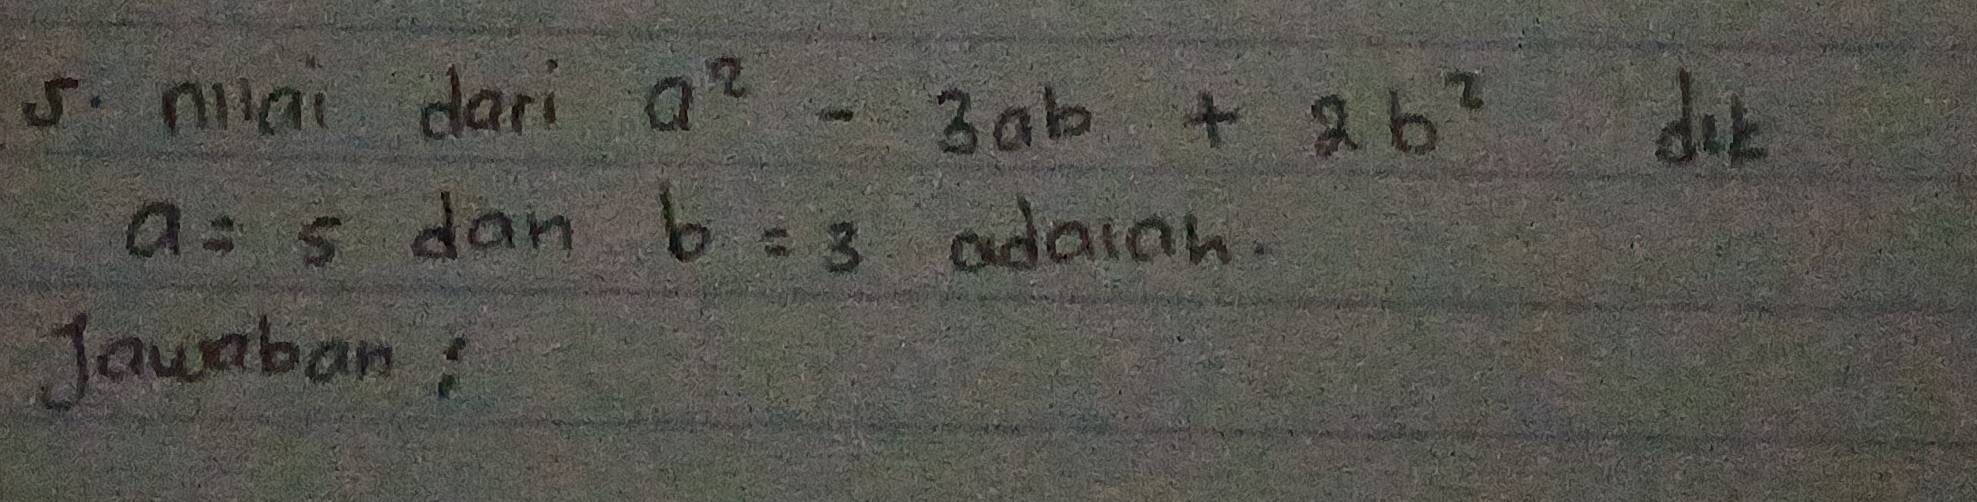 5. nilai dari a² - 3ab + 2b² dik
a = 5 dan b = 3 adalah.
Jawaban :